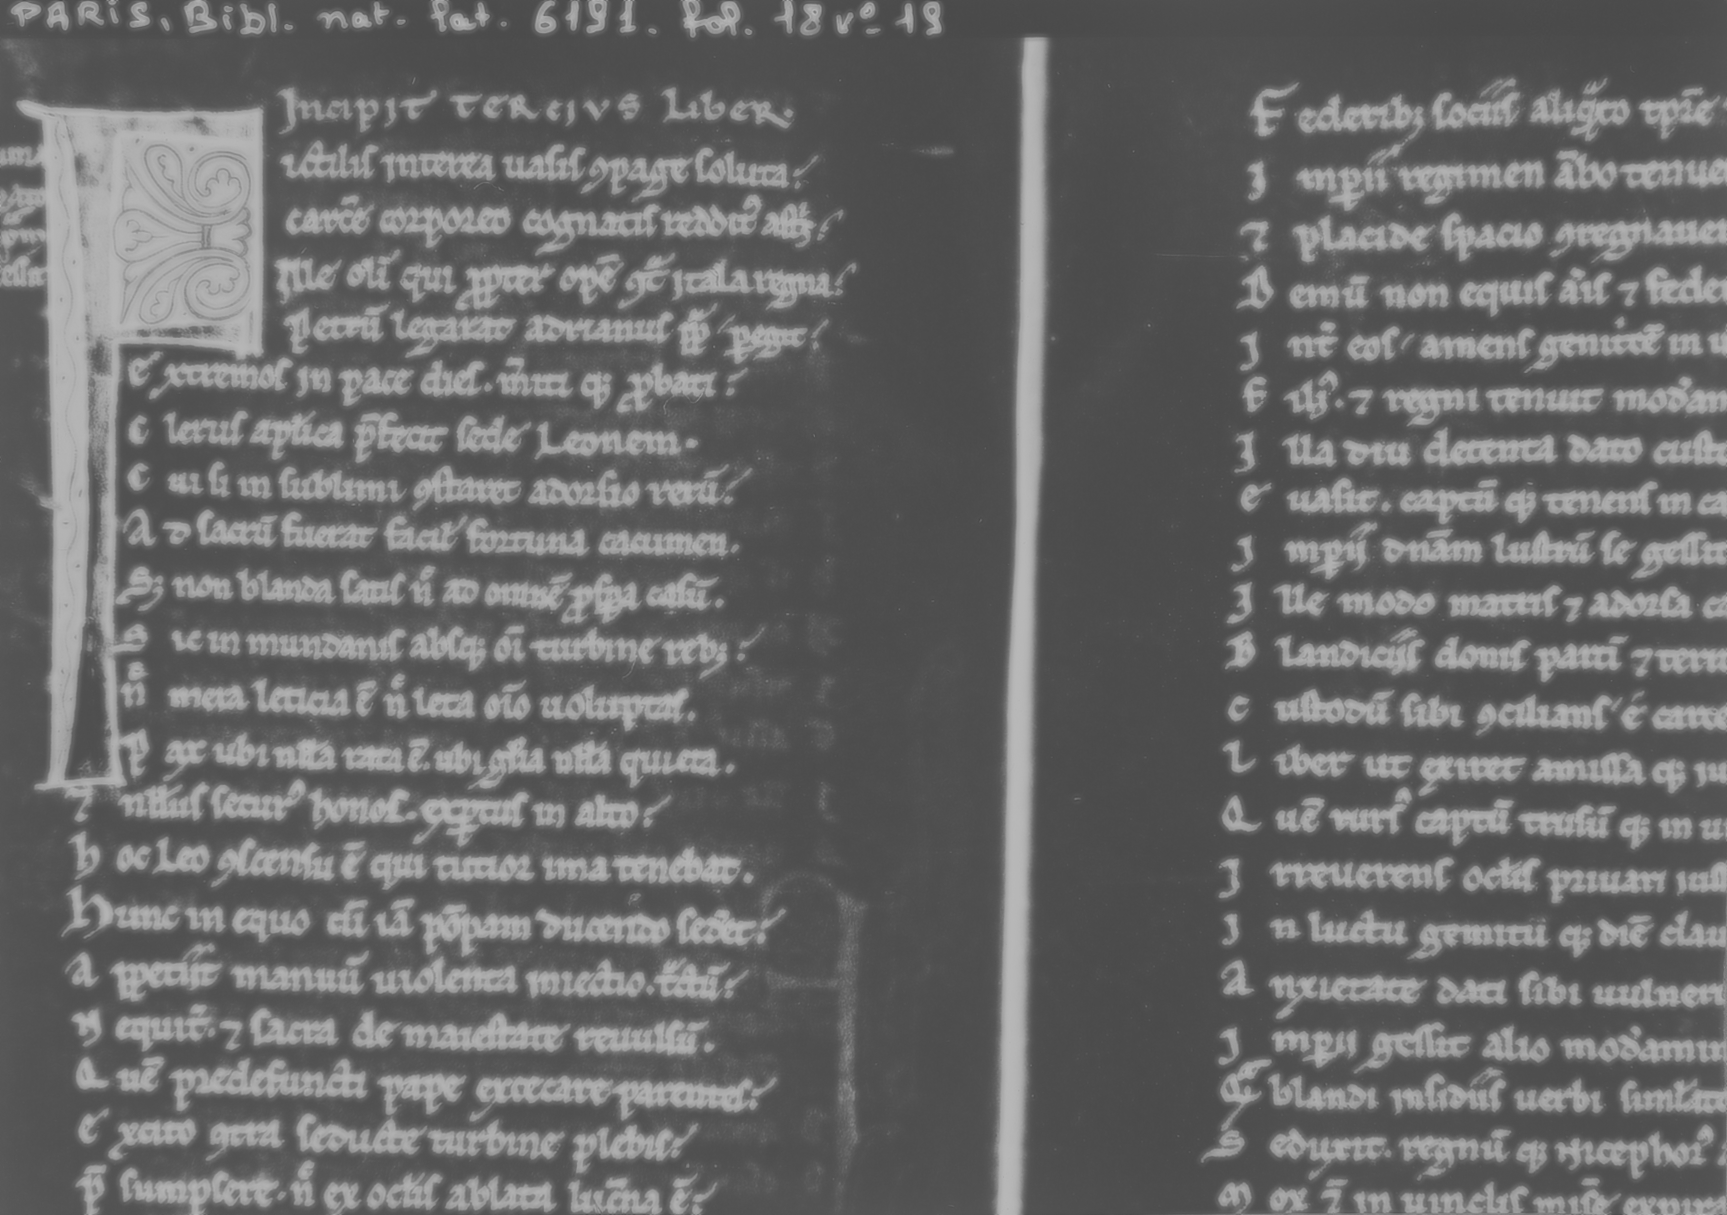 PARIS, Bibl. nat. lat. 6191. fol. 18 vº-19
Incipit tercius liber.
Fictilis interea uasis ꝯpage soluta.
carcē corporeo cognatis redditꝰ astris
Ille oli qui ꝓpter opē ꝯtͣ itala regna
Petrū legarat adrianus pp̄ pegit
Extremos in pace dies. mͥti qꝫ ꝓbati
Clerus aplica p̄fecit sede Leonem.
Cui si in sublimi ꝯstaret adorsio rerū
Ad sacrū fuerat facil fortuna cacumen.
Sꝫ non blanda satis nͦ ad omnē ꝓspa casū.
Sic in mundanis absqꝫ oi turbine rebꝫ
nͦ mera leticia ē nͦ leta oīo uoluptas.
Pax ubi nulla rata ē. ubi glia nulla quieta.
⁊ nullus securꝰ honos. exptus in alto
hoc Leo ꝯscensu ē qui tutior ima tenebat.
Hunc in equo cū iā pōpam ducendo sedet
appetiit manuū uiolenta iniectio.
Nequit. ⁊ sacra de maiestate reuulsū.
Quē predefuncti pape excecare parentes
Excito ꝯtra seducte turbine plebis
p̄sumpsere. nͦ ex oclis ablata lucna ē
Federibꝫ sociis aliqͣto tpre
Impii regimen ābo tenue
⁊ placide spacio ꝯregnauer
Demū non equis aīs ⁊ feder
Int eos amens genitcē in u
Filiꝰ. ⁊ regni tenuit modam
Illa diu detenta dato custo
euasit. captū qꝫ tenens in ca
Impii dnām lustrū se gessit
Ille modo mattis ⁊ adorsa c
Blandiciis donis parti ⁊ terr
custodū sibi ꝯcilians ē carce
Liber ut exiret amissa qꝫ iu
Quē rurs captū trusū qꝫ in u
Irreuerens oclis priuari ius
In luctu gemitu qꝫ diē clau
Anxietate dati sibi uulneri
Impii gessit alio modamin
Et blandi insidiis uerbi simlat
Seduxit. regnū qꝫ Nicephorꝰ
Mox ⁊ in uinclis misē expir